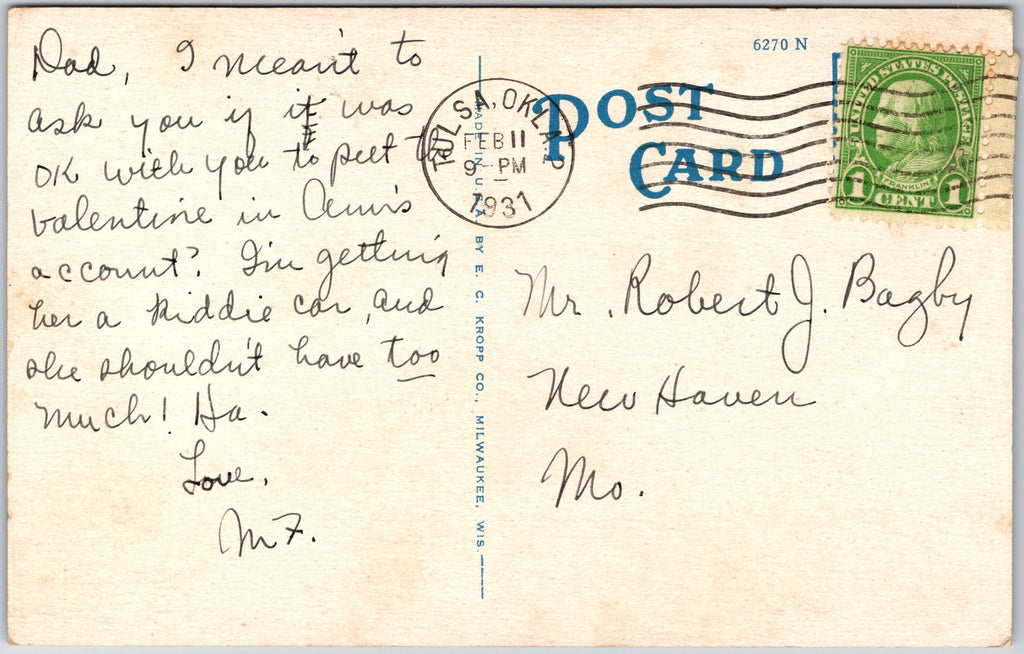 Dad, I meant to
ask you if it was
OK with you to put the
valentine in Ann's
account? I'm getting
her a kiddie car, and
she shouldn't have too
much! Ha.
Love,
M F.
MADE IN U.S.A. BY E. C. KROPP CO., MILWAUKEE, WIS.
TULSA, OKLA.
FEB 11
9 - PM
1931
6270 N
POST
CARD
UNITED STATES POSTAGE
FRANKLIN
1 CENT 1
Mr. Robert J. Bagby
New Haven
Mo.